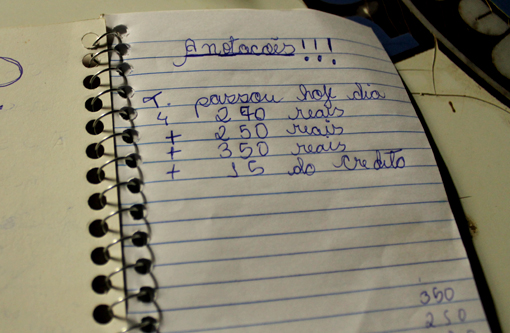 Anotacões!!!
T. passou hoje dia
4 270 reais
+ 250 reais
+ 350 reais
+ 15 do credito
350
250